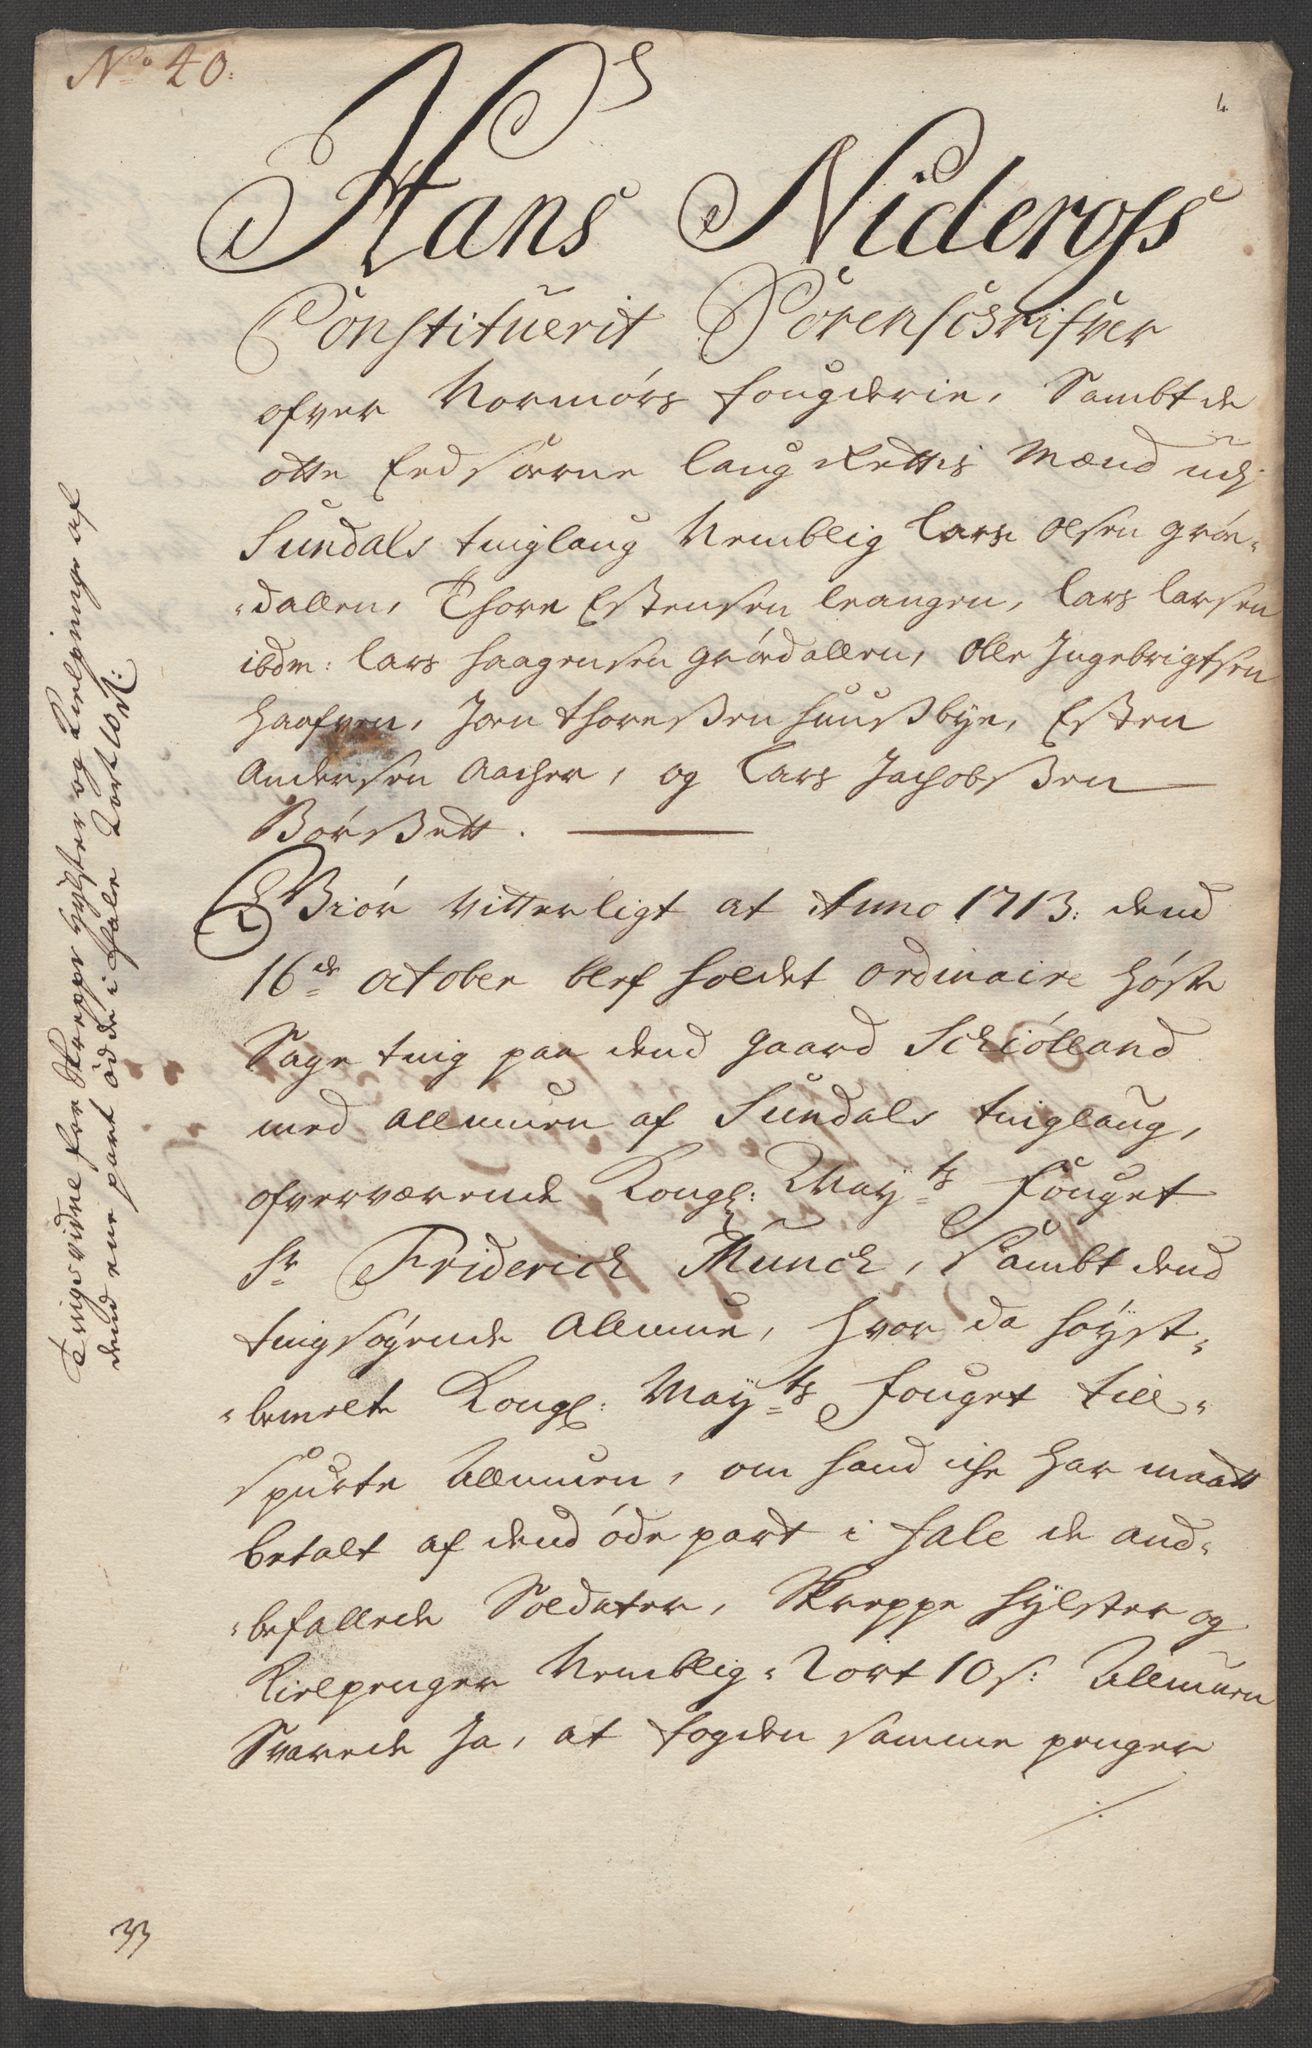 No 40:
Hans Nideross
Constituerit Sorenschrifver
ofver Normørs fougderie, Sambt de
otte Eed Sorne laug Rettis Mænd udj
Sundals tinglaug Nemblig Lars Olsen grøv-
-dallen, Thore Estensen leangen, Lars Larsen
ibdm: Lars Haagensen grøvdallen, Olle Ingebrigtsen
Haafven, Joen Thoresen Huusbye, Esten
Andersen Aacher, og Lars Jachobsen
Børsett.
Giør vitterligt at Anno 1713: dend
16de october blef holdet ordinaire Høste
Sage ting paa dend gaard Schiølland
med Allmuen af Sundals tinglaug,
ofverværende Kongl: Mayts fouget
Sr Friderich Munch, Sambt dend
tingsøgende Allmue, hvor da høyst-
-bemelte Kongl: Mayts fouget till-
spurte Allmuen, om hand iche har maatt
betalt af dend øde part i Hale de and-
-befallede Soldater, Skreppe Hylster og
Kielpenger Nemblig 2 ort 10 s: Allmuen
Svarede Ja, at fogden samme penger
Tingsvidne for Skreppe Hylster og Kielpenge af
dend ene part øde i Hale 2 ort 10 s:
33